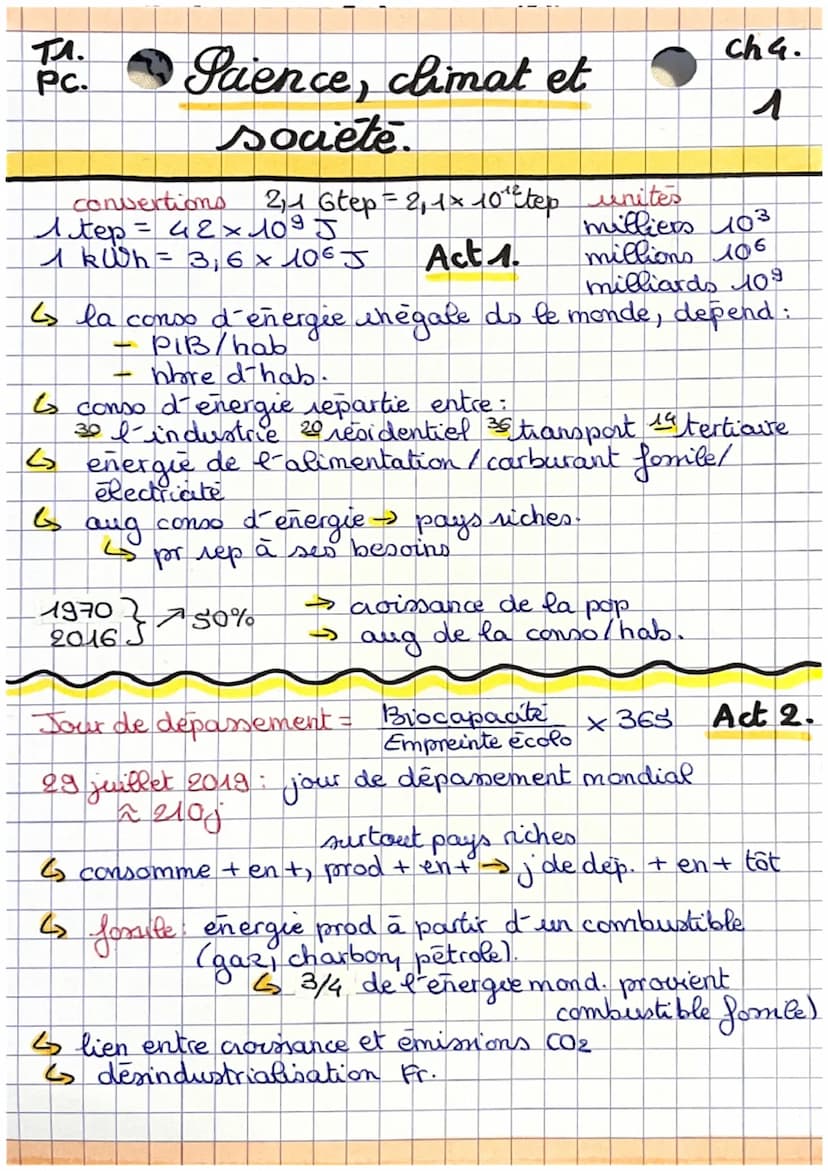 T1.
PC.
Science, climat et
société.
Ch 4.
1
convertions 2,1 Gtep = 2,1 x 10¹² tep unités
1 tep = 42 x 10⁹ J milliers 10³
1 kWh = 3,6 x 10⁶ J Act 1. millions 10⁶
milliards 10⁹
↳ la conso d'énergie inégale ds le monde, dépend :
- PIB/hab
- nbre d'hab.
↳ conso d'énergie répartie entre :
30 l'industrie 20 résidentiel 36 transport 14 tertiaire
↳ énergie de l'alimentation / carburant fossile /
électricité
↳ aug conso d'énergie → pays riches.
↳ pr rep à ses besoins
1970 } ↗ 50% → croissance de la pop
2016 → aug de la conso/hab.
Jour de dépassement = Biocapacité / Empreinte écolo x 365 Act 2.
29 juillet 2019 : jour de dépassement mondial
≈ 210j
surtout pays riches
↳ consomme + en +, prod + en + → j de dép. + en + tôt
↳ fossile : énergie prod à partir d'un combustible
(gaz, charbon, pétrole).
↳ 3/4 de l'énergie mond. provient
combustible fossile)
↳ lien entre croissance et émissions CO2
↳ désindustrialisation Fr.